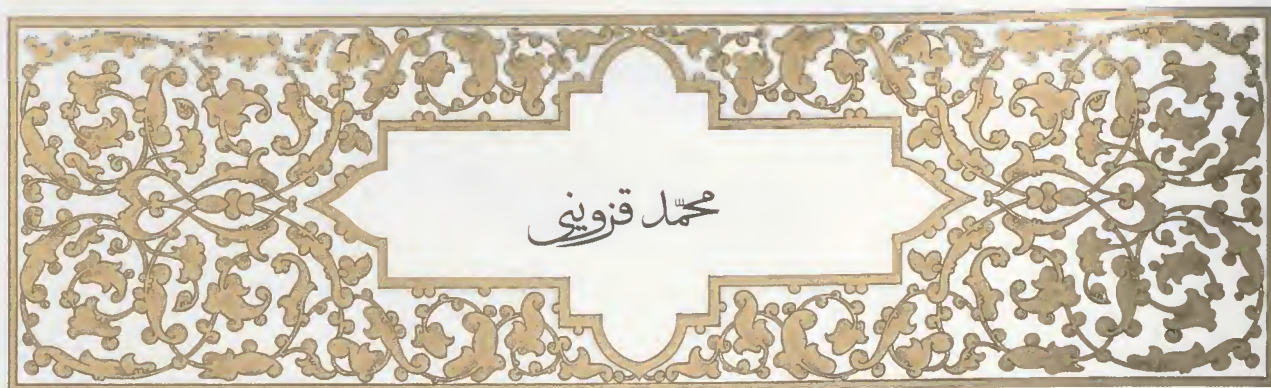 محمّد قزوینی